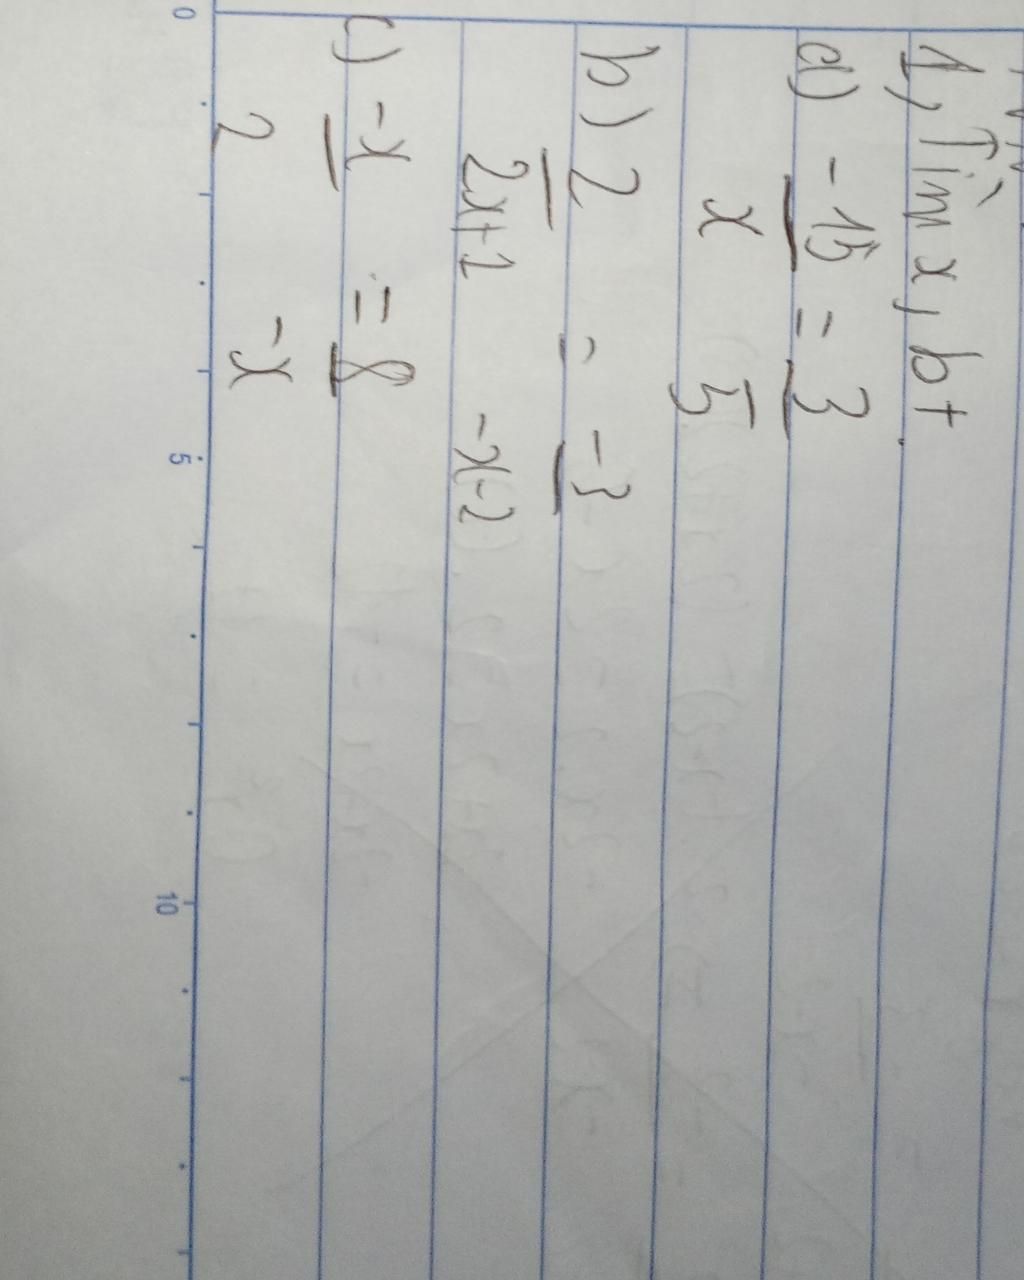 1, Tìm x, bt
a) -15 = 3
x 5
b) 2 = -3
2x+1 -x-2
c) -x = 8
2 -x
0 5 10